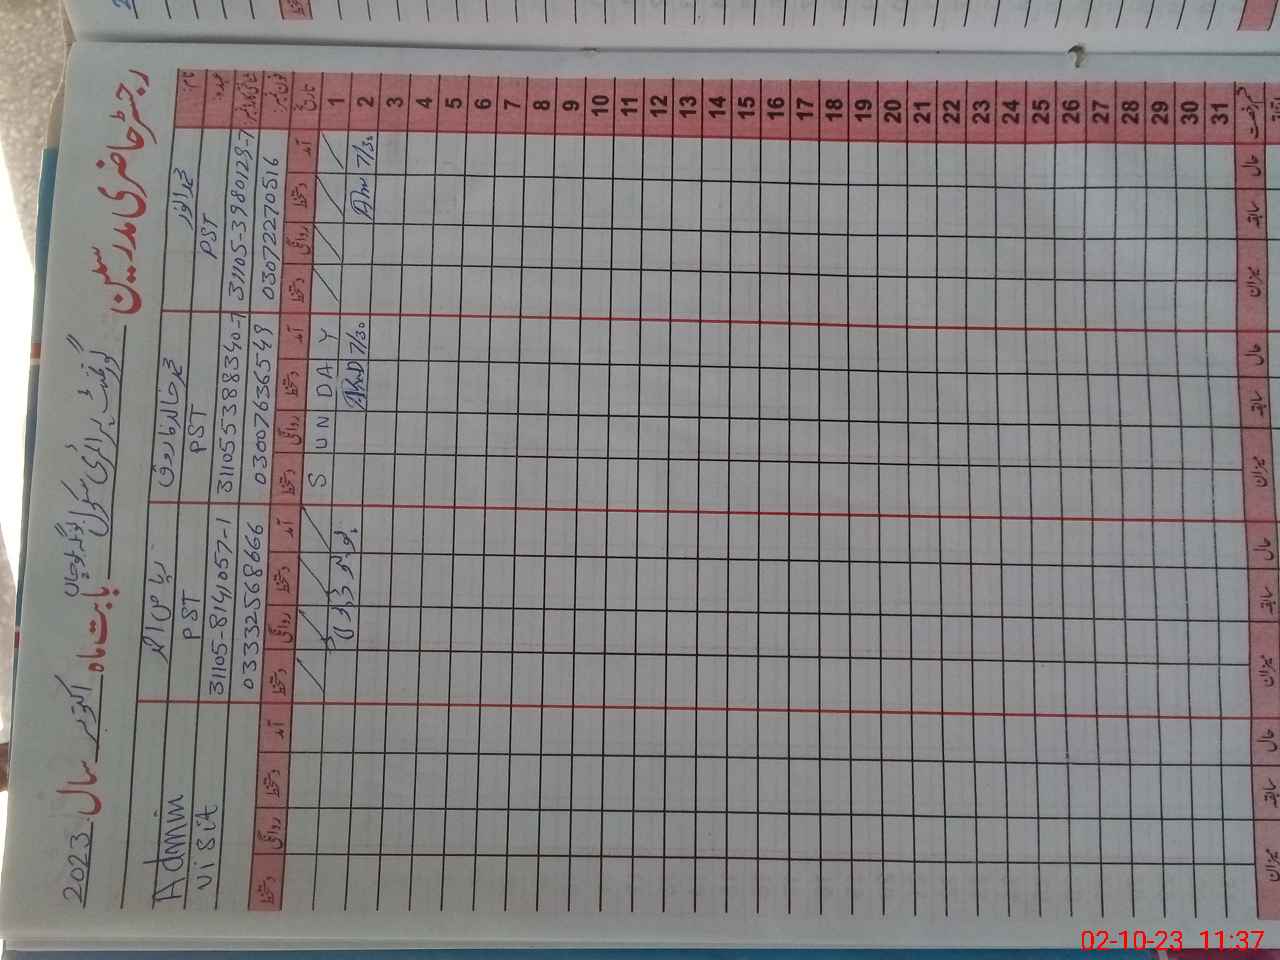 رجسٹر حاضری مدرسین گورنمنٹ پرائمری سکول بابت ماہ اکتوبر سال 2023
نام: محمد انور محمد خالد فاروق ریاض احمد Admin
عہدہ: PST PST PST Visit
31105-3980129-7 311055388340-7 31105-8141057-1
03072270516 03007636549 03332568666
تاریخ آمد دستخط روانگی دستخط آمد دستخط روانگی دستخط آمد دستخط روانگی دستخط آمد دستخط روانگی دستخط
1 S U N D A Y
2 7/30 7/30
3
4
5
6
7
8
9
10
11
12
13
14
15
16
17
18
19
20
21
22
23
24
25
26
27
28
29
30
31
حال سابقہ میزان حال سابقہ میزان حال سابقہ میزان حال سابقہ میزان
02-10-23 11:37